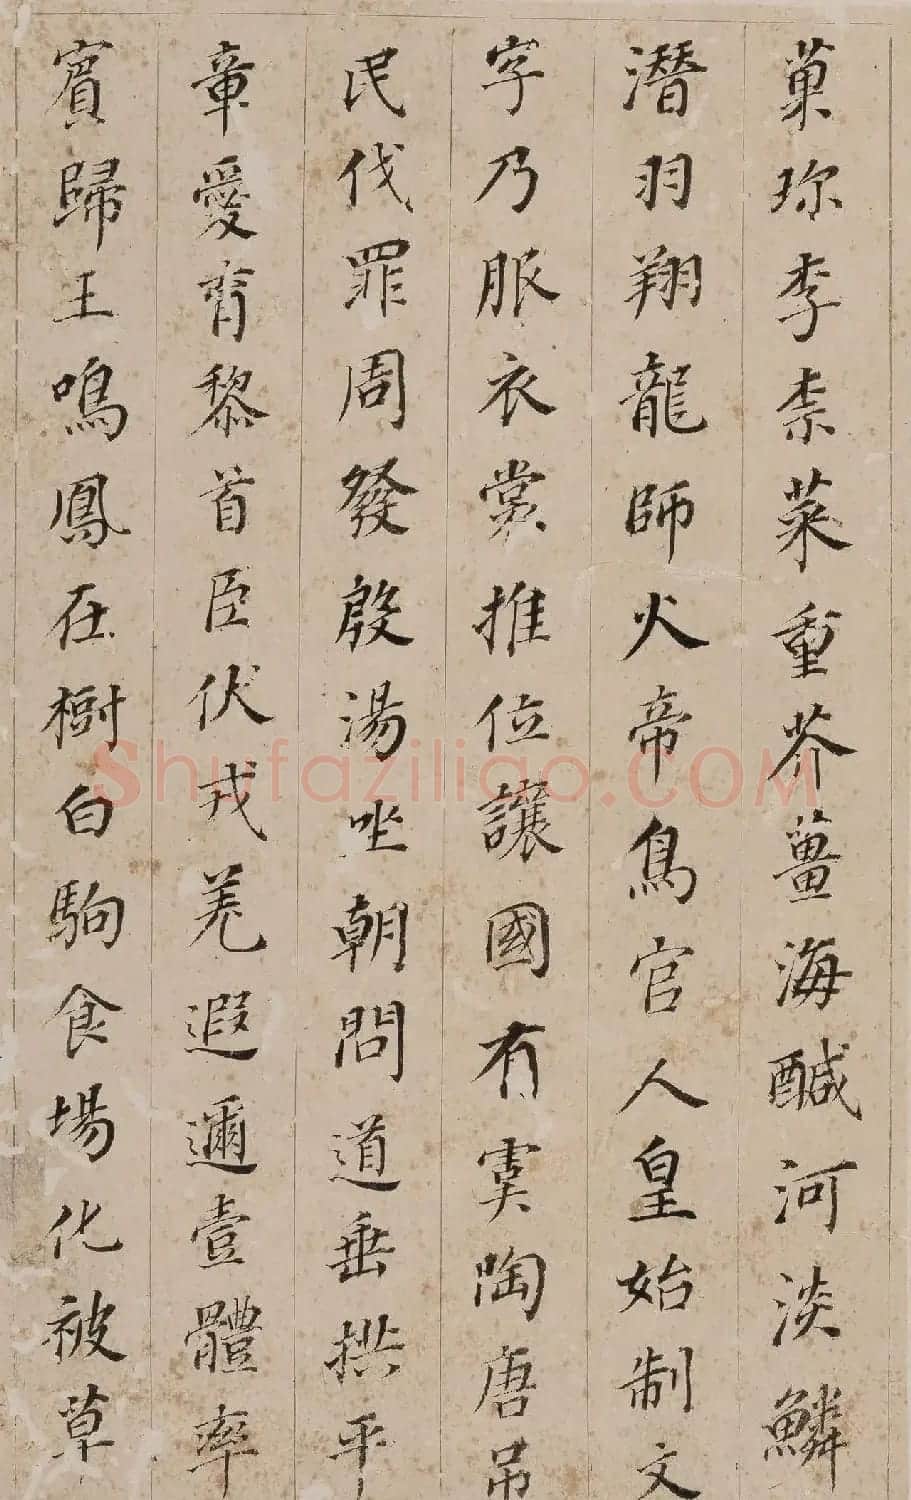 菓珎李柰菜重芥薑海醎河淡鱗
潛羽翔龍師火帝鳥官人皇始制文
字乃服衣裳推位讓國有虞陶唐吊
民伐罪周發殷湯唑朝問道垂拱平
章愛育黎首臣伏戎羌遐邇壹體率
賓歸王鳴鳳在樹白駒食場化被草
Shufaziliao.COM